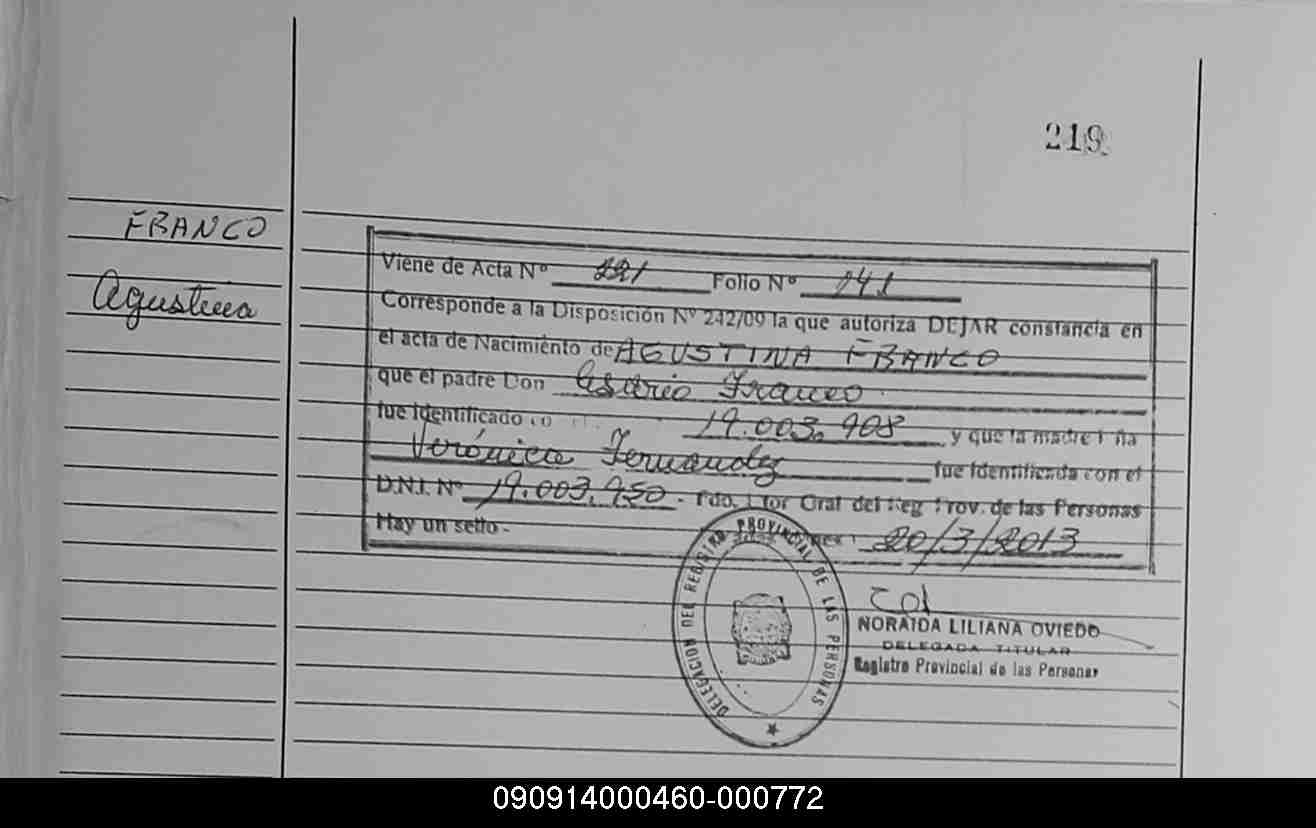 219
FRANCO
Agustina
Viene de Acta Nº 221 Folio Nº 141
Corresponde a la Disposición Nº 242/09 la que autoriza DEJAR constancia en
el acta de Nacimiento de AGUSTINA FRANCO
que el padre Don Franco
fue identificado 19.003.908 y que la madre
Verónica Fernandez fue identificada con el
D.N.I. Nº 19.003.950 - Fdo. Gral del Reg Prov. de las Personas
Hay un sello - 20/3/2013
DELEGACION DEL REGISTRO PROVINCIAL DE LAS PERSONAS
NORAIDA LILIANA OVIEDO
DELEGADA TITULAR
Registro Provincial de las Personas
090914000460-000772